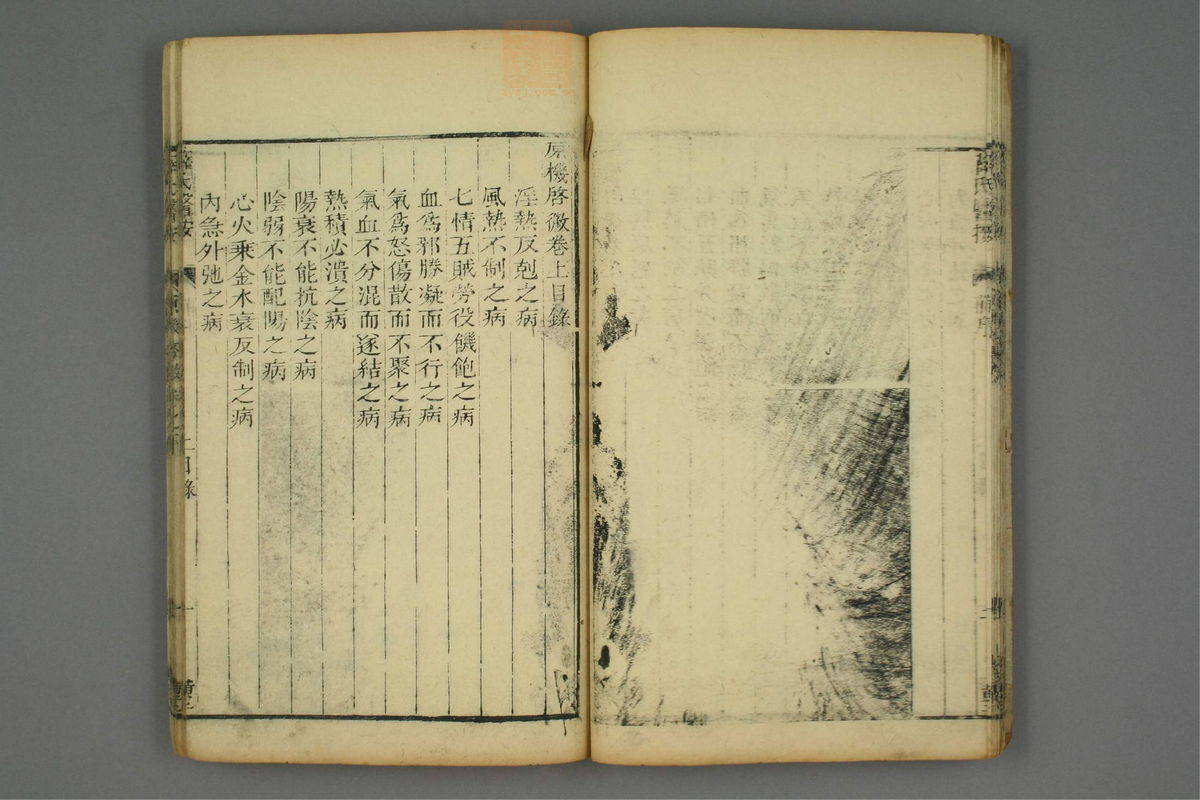 原機啓微卷上目錄
淫熱反剋之病
風熱不制之病
七情五賊勞役饑飽之病
血爲邪勝凝而不行之病
氣爲怒傷散而不聚之病
氣血不分混而遂結之病
熱積必潰之病
陽衰不能抗陰之病
陰弱不能配陽之病
心火乘金水衰反制之病
內急外弛之病
薛氏醫按
上目錄
一